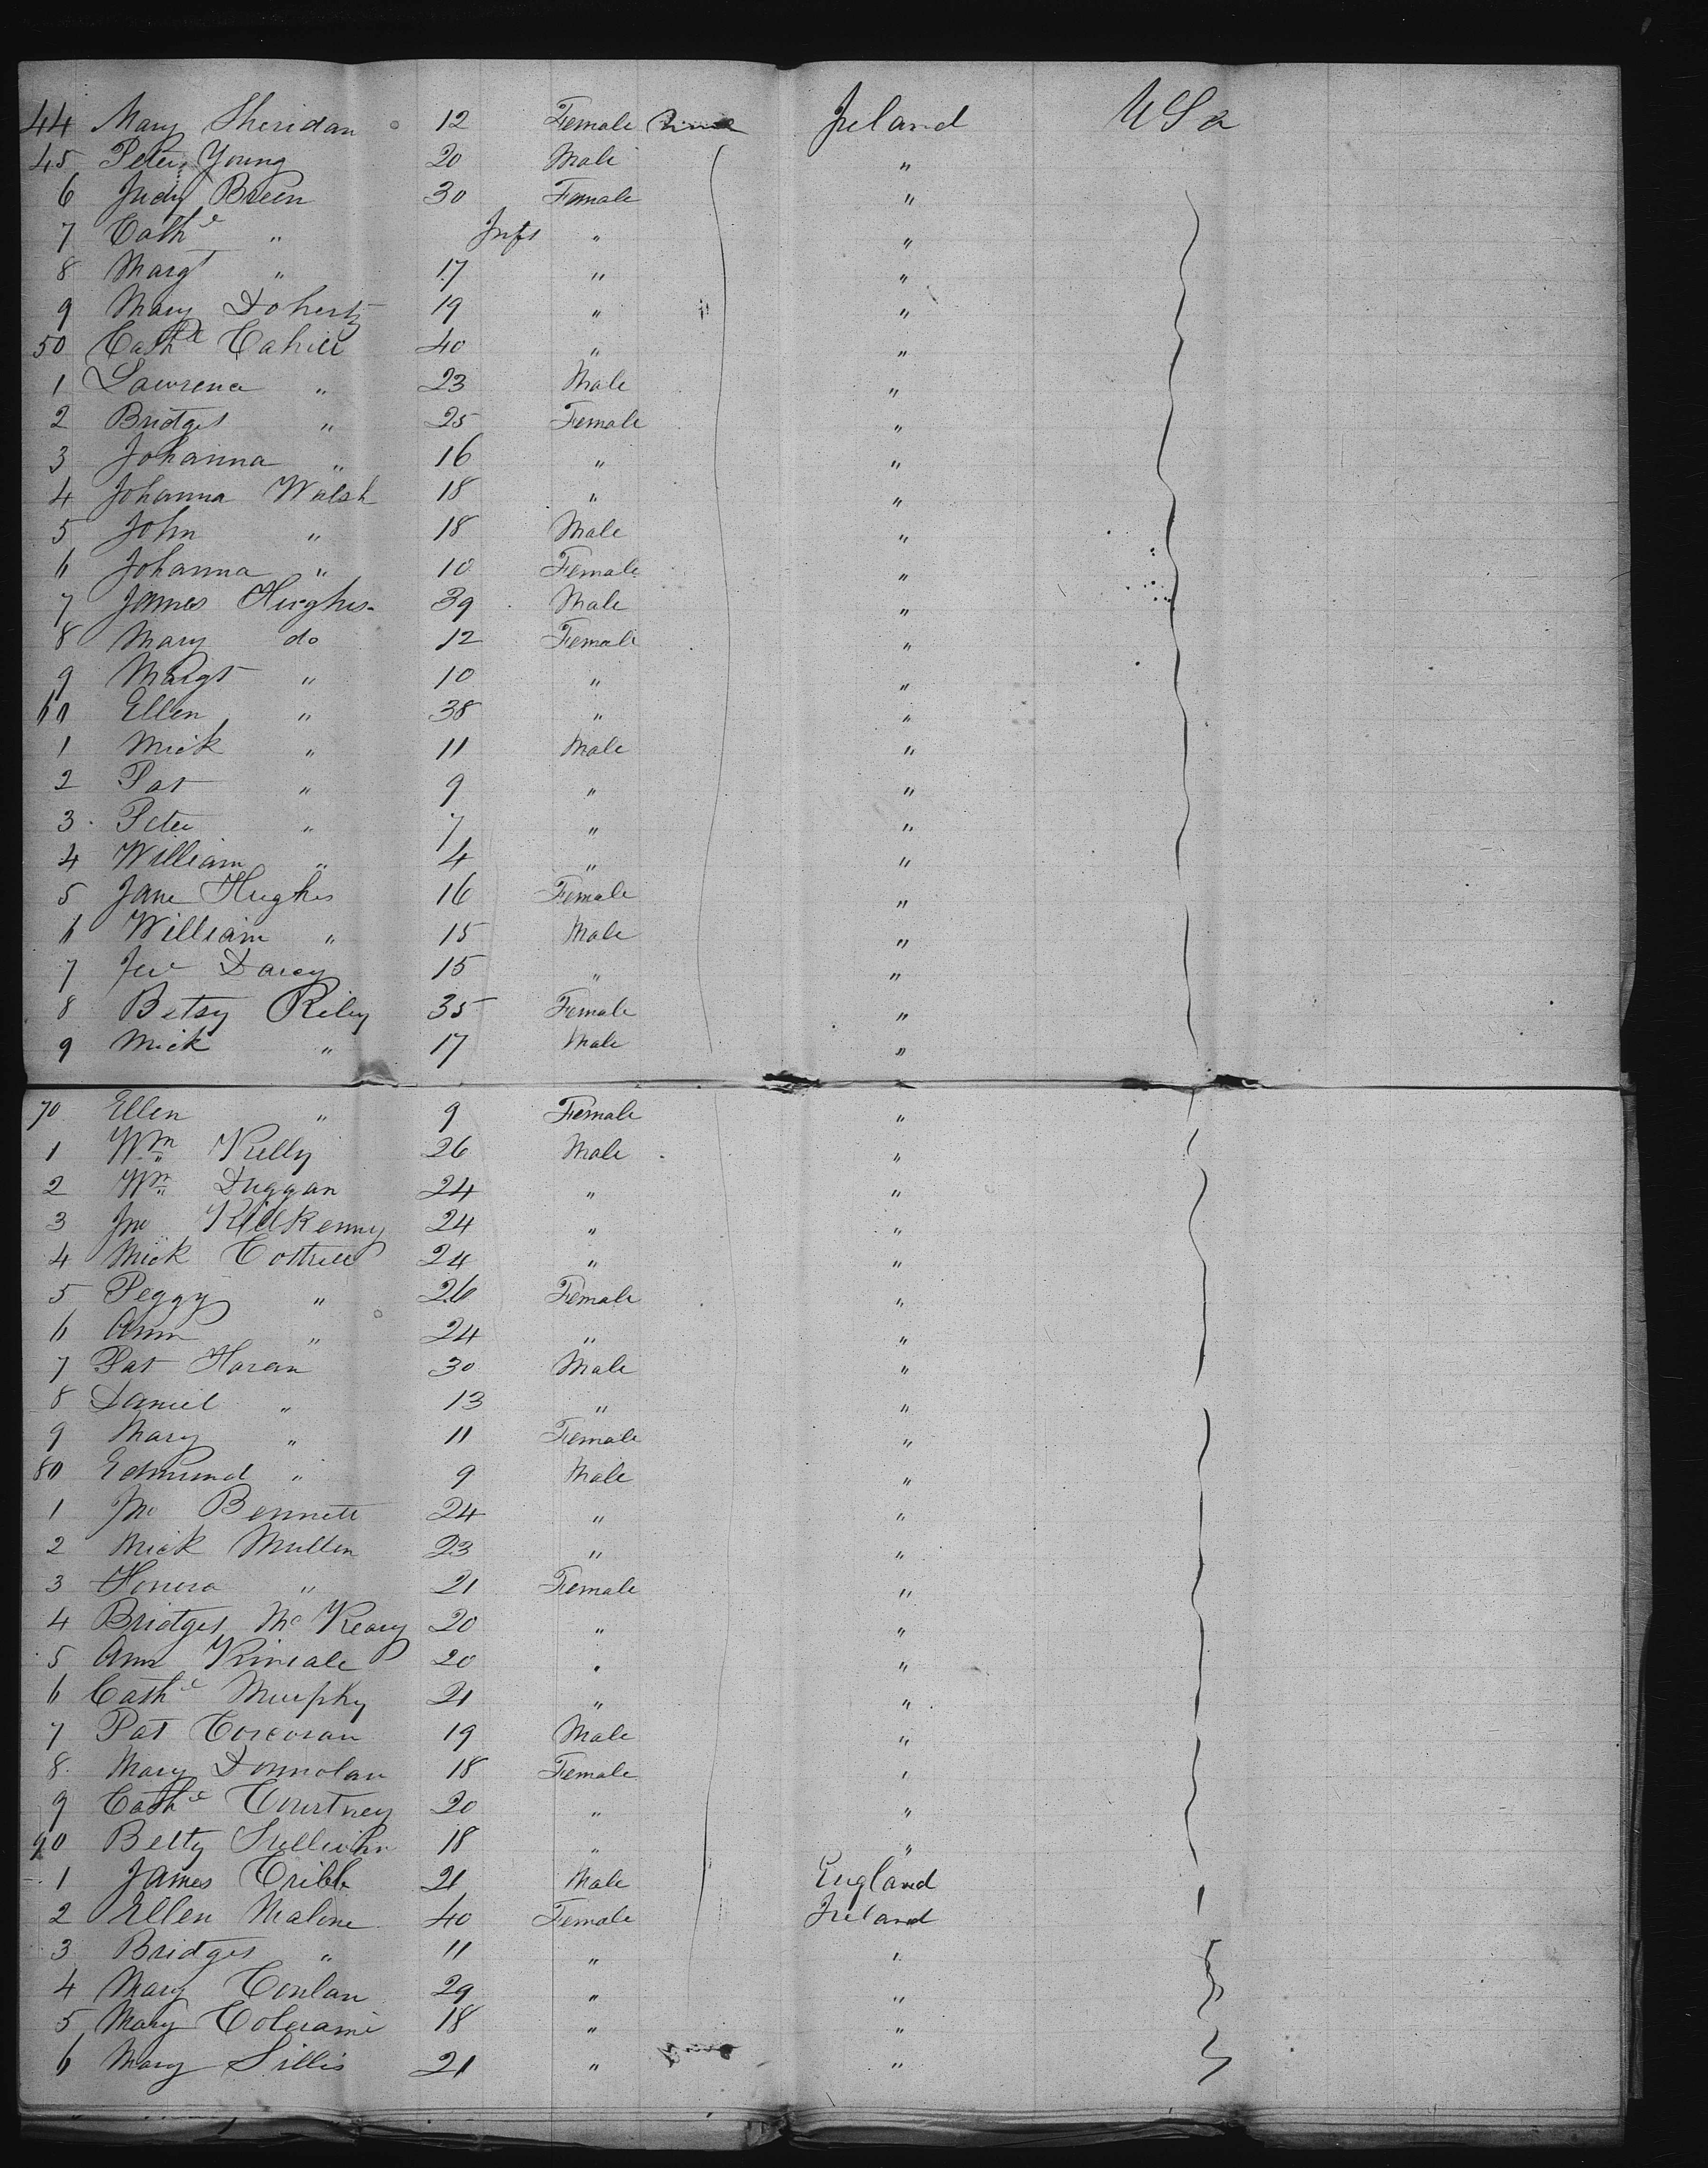 44 Mary Sheridan 12 Female None Ireland USa
45 Peter Young 20 Male "
6 Judy Breen 30 Female "
7 Cathe " Inft " "
8 Margt " 17 " "
9 Mary Doherty 19 " "
50 Cathe Cahill 40 " "
1 Lawrence " 23 Male "
2 Bridget " 25 Female "
3 Johanna " 16 " "
4 Johanna Walsh 18 " "
5 John " 18 Male "
6 Johanna " 10 Female "
7 James Hughes 39 Male "
8 Mary do 12 Female "
9 Margt " 10 " "
60 Ellen " 38 " "
1 Mick " 11 Male "
2 Pat " 9 " "
3 Peter " 7 " "
4 William " 4 " "
5 Jane Hughes 16 Female "
6 William " 15 Male "
7 Darcy 15 " "
8 Betsy Riley 35 Female "
9 Mick " 17 Male "
70 Ellen " 9 Female "
1 Wm Kelly 26 Male "
2 Wm Duggan 24 " "
3 Jno Kilkenny 24 " "
4 Mick Cottrell 24 " "
5 Peggy " 26 Female "
6 Ann " 24 " "
7 Pat Horan 30 Male "
8 Daniel " 13 " "
9 Mary " 11 Female "
80 Edmund " 9 Male "
1 Jno Bennett 24 " "
2 Mick Mullen 23 " "
3 Honora " 21 Female "
4 Bridget Mc Keary 20 " "
5 Ann Kineale 20 " "
6 Cathe Murphy 21 " "
7 Pat Corcoran 19 Male "
8 Mary Donnolan 18 Female "
9 Cathe Courtney 20 " "
90 Betty Sullivan 18 " "
1 James Cribb 21 Male England
2 Ellen Malone 40 Female Ireland
3 Bridget " 11 " "
4 Mary Conlan 29 " "
5 Mary 18 " "
6 Mary Sillis 21 " "